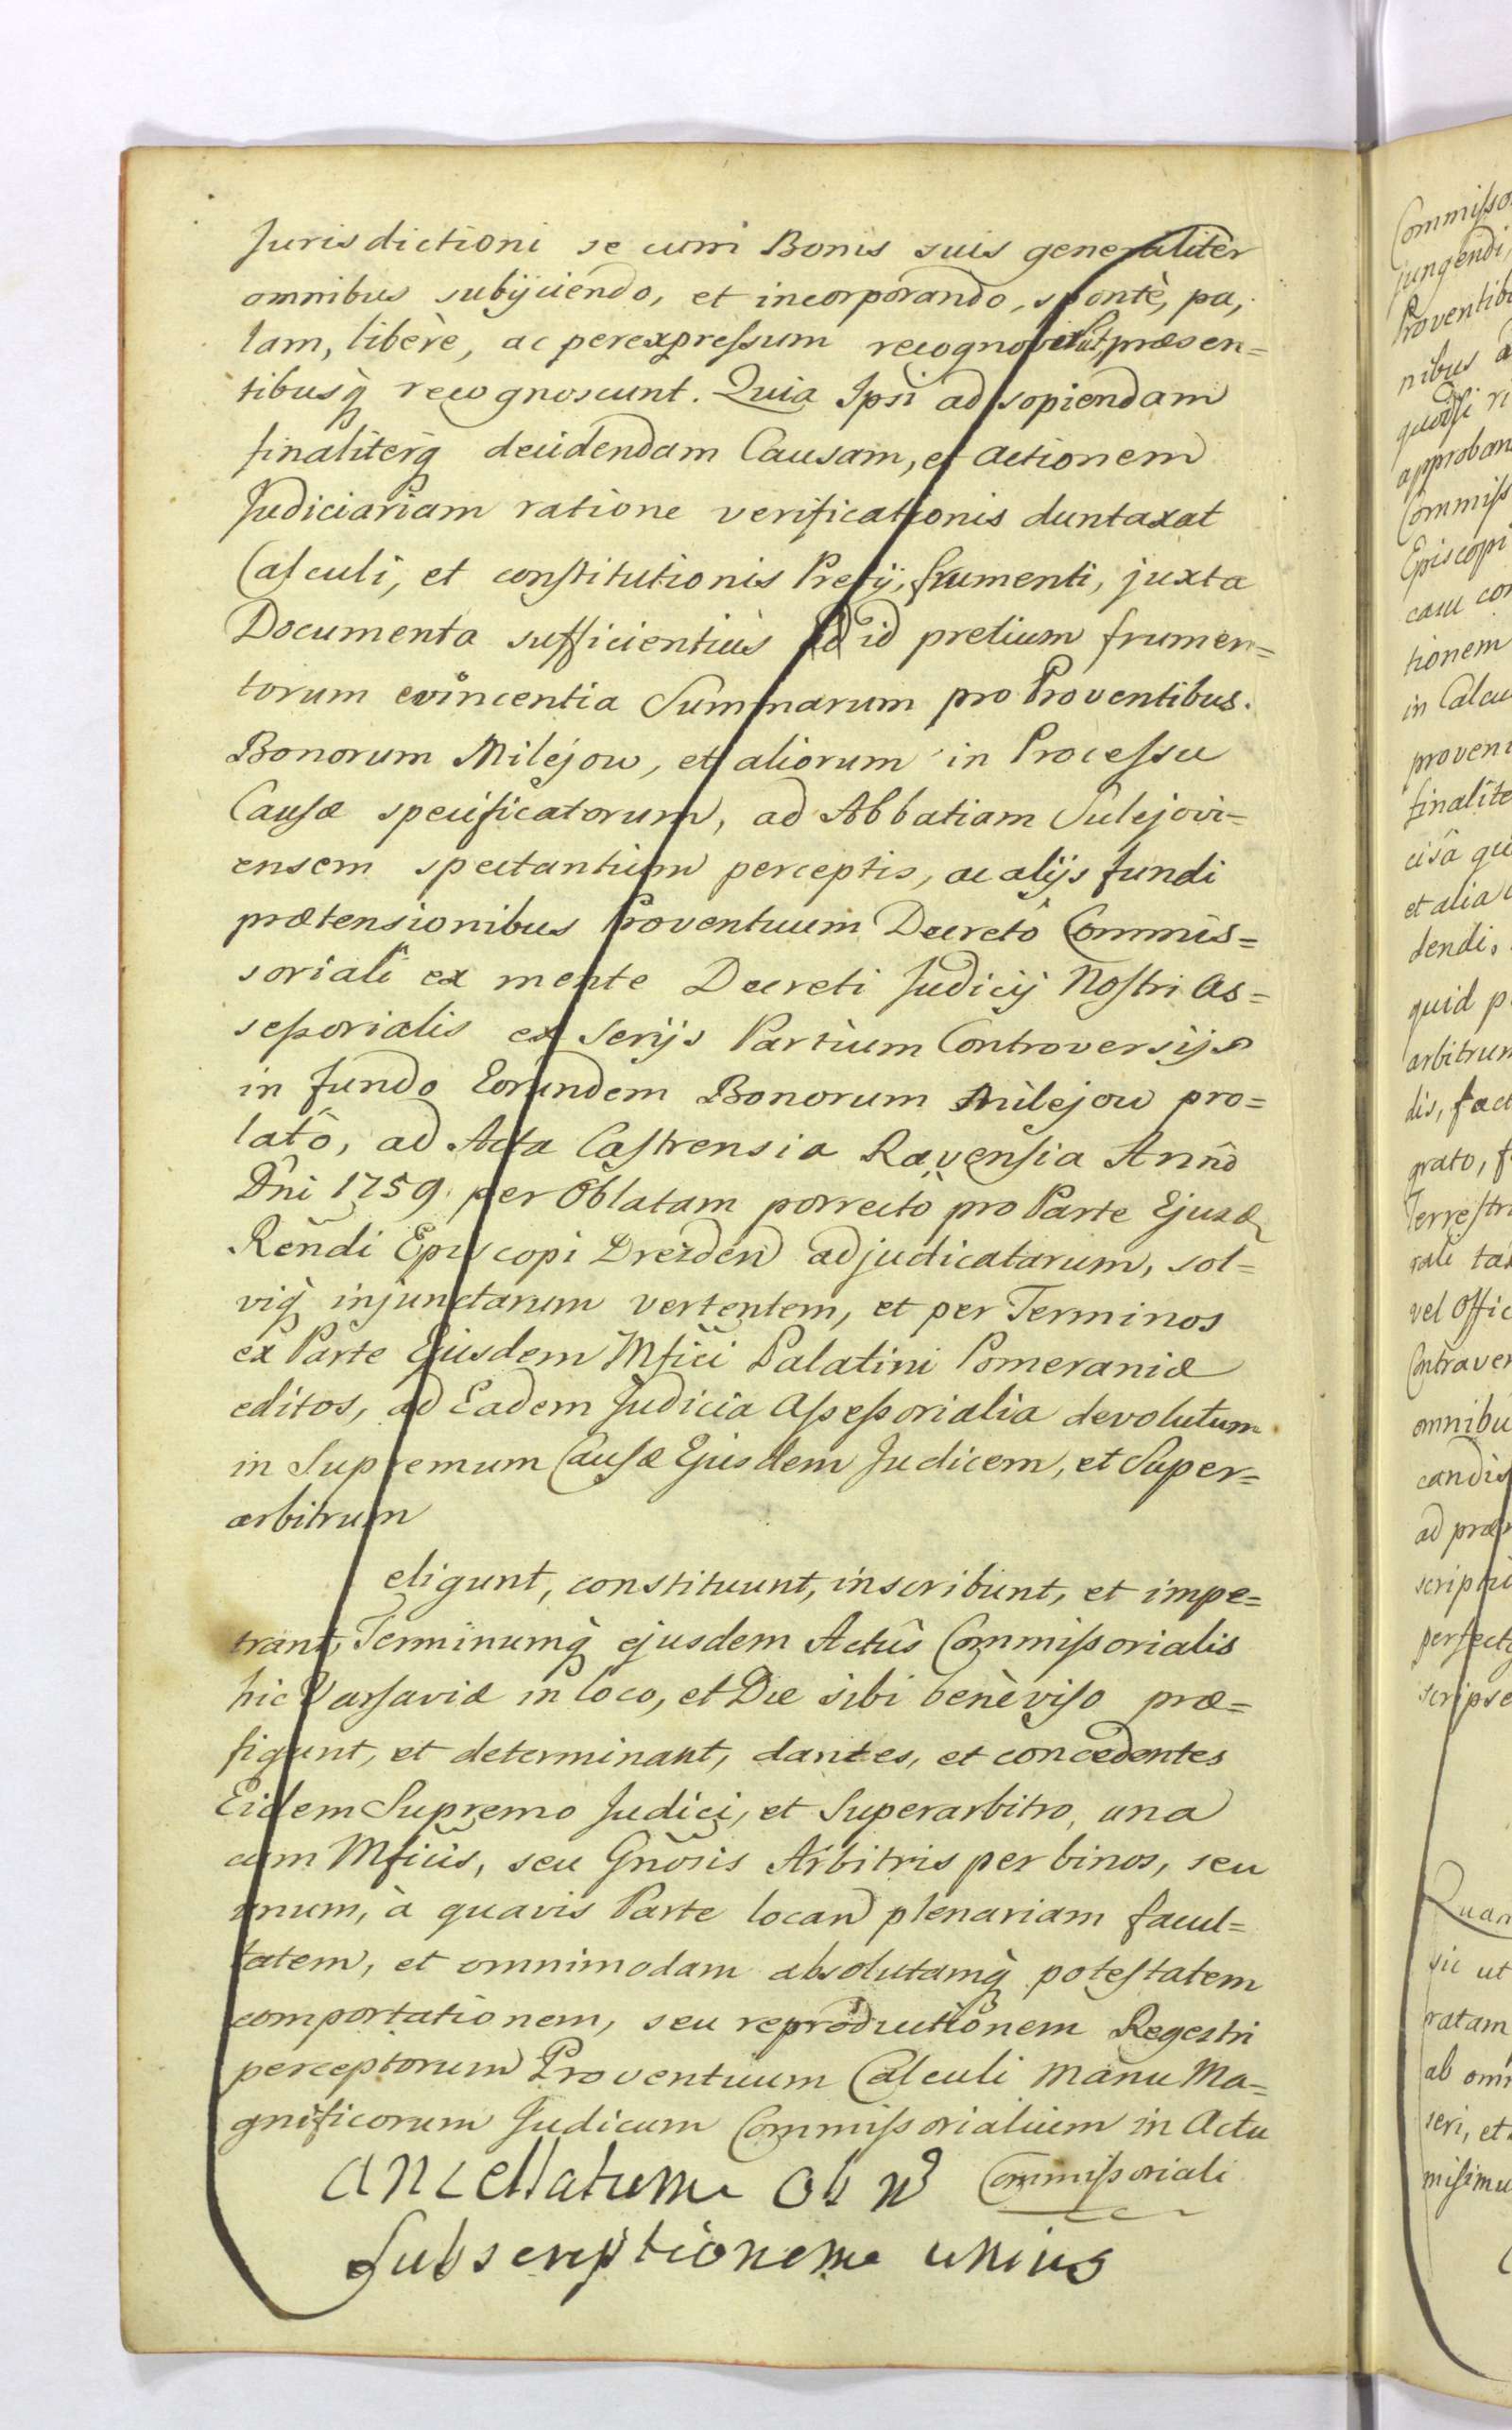 Jurisdictioni se cum Bonis suis generaliter
omnibus subijciendo, et incorporando, spontè, pa,
lam, libère, ac per expressum recognoverunt, præsen=
tibusq̀ recognoscunt. Quia Ipsi ad sopiendam
finaliterq̀ decidendam Causam, et actionem
Judiciariam ratione verificationis duntaxat
Calculi, et constitutionis Pretij, frumenti, juxta
Documenta sufficientiùs ad id pretium frumen=
torum evincentia Summarum pro Proventibus.
Bonorum Milejow, et aliorum in Processu
Causæ specificatorum, ad Abbatiam Sulejovi=
ensem spectantium perceptis, ac alijs fundi
prætensionibus Proventuum Decretô Commis=
soriali ex mente Decreti Judicij Nostri As=
sessorialis ex Serijs Partium Controversijs
in fundo Eorundem Bonorum Milejow pro=
latô, ad Acta Castrensia Ravensia Annô
Dñi 1759. per Oblatam porrectô pro Parte Ejusd
Rendi Episcopi Drezden adjudicatarum, sol=
viq̀ injunctarum vertentem, et per Terminos
ex Parte Ejusdem Mfici Palatini Pomeraniæ
editos, ad Eadem Judicia Assessorialia devolutum
in Supremum Causæ Ejusdem Judicem, et Super=
arbitrum
eligunt, constituunt, inscribunt, et impe=
trant, Terminumq̀ ejusdem Actûs Commissorialis
hic Varsaviæ in loco, et Die sibi benè viso præ=
figunt, et determinant, dantes, et concedentes
Eidem Supremo Judici, et Superarbitro, una
cum Mficis, seu Gnosis Arbitris per binos, seu
unum, à quavis Parte locand plenariam facul=
tatem, et omnimodam absolutamq̀ potestatem
comportationem, seu reproductionem Regestri
perceptorum Proventuum Calculi manu Ma=
gnificorum Judicum Commissorialium in Actu
Commissoriali
Cancellatum Ob
Subscriptionem unius